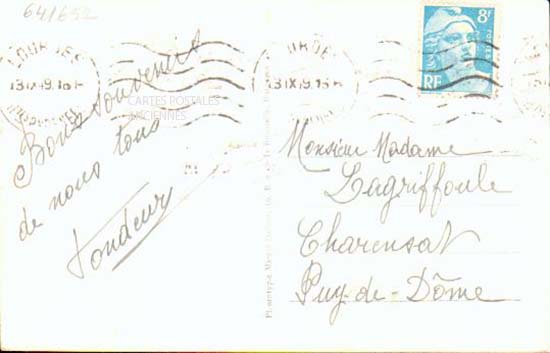 641652
LOURDES
13 IX 49. 16 H
LOURDES
13 IX 49. 16 H
8F
RF
CARTES POSTALES
ANCIENNES
Bons souvenirs
de nous tous
Tondeur
Monsieur Madame
Lagriffoule
Charensat
Puy-de-Dôme